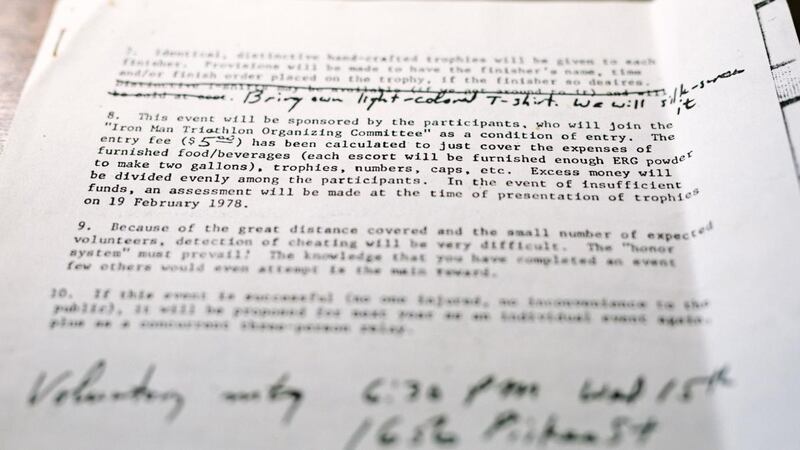 7. Identical, distinctive hand-crafted trophies will be given to each
finisher. Provisions will be made to have the finisher's name, time
and/or finish order placed on the trophy, if the finisher so desires.
Distinctive T-shirts may be available (if we get around to it) and will
be sold at cost. Bring own light-colored T-shirt. We will silk-screen
it
8. This event will be sponsored by the participants, who will join the
"Iron Man Triathlon Organizing Committee" as a condition of entry. The
entry fee ($ 5.00) has been calculated to just cover the expenses of
furnished food/beverages (each escort will be furnished enough ERG powder
to make two gallons), trophies, numbers, caps, etc. Excess money will
be divided evenly among the participants. In the event of insufficient
funds, an assessment will be made at the time of presentation of trophies
on 19 February 1978.
9. Because of the great distance covered and the small number of expected
volunteers, detection of cheating will be very difficult. The "honor
system" must prevail! The knowledge that you have completed an event
few others would even attempt is the main reward.
10. If this event is successful (no one injured, no inconvenience to the
public), it will be proposed for next year as an individual event again,
plus as a concurrent three-person relay.
Voluntary mtg 6:30 PM Wed 15th
1656 St